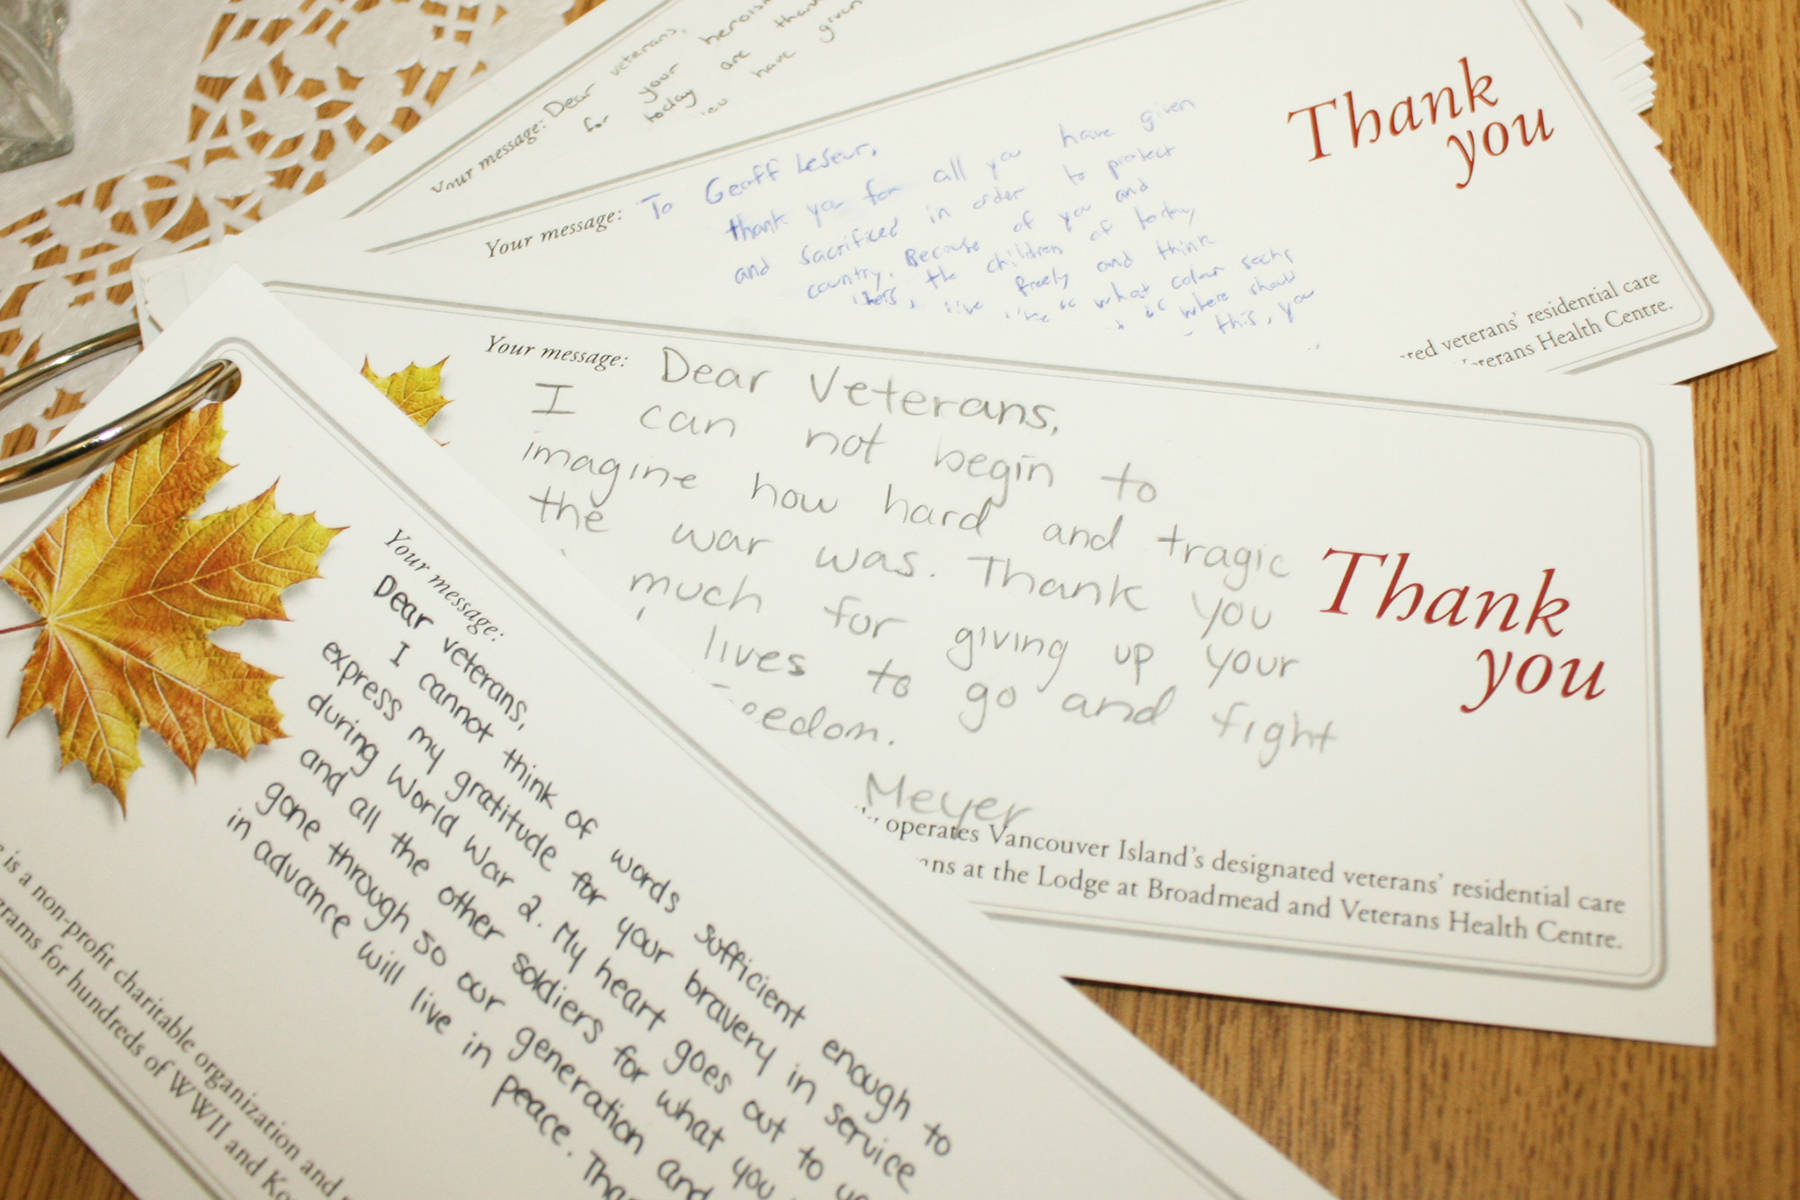 Your message: Dear veterans,
for your heroism
today are than
you have given
Thank
you
Your message: To Geoff LeSeur,
thank you for all you have given
and sacrificed in order to protect
country. Because of you and
the children of today
live freely and think
what colour socks
where should
this, you
red veterans' residential care
Veterans Health Centre.
Your message: Dear Veterans,
I can not begin to
imagine how hard and tragic
the war was. Thank you
much for giving up your
lives to go and fight
eedom.
Meyer
Thank
you
operates Vancouver Island's designated veterans' residential care
ns at the Lodge at Broadmead and Veterans Health Centre.
Your message:
Dear veterans,
I cannot think of words sufficient enough to
express my gratitude for your bravery in service
during World War 2. My heart goes out to yo
and all the other soldiers for what you
gone through so our generation and
in advance will live in peace. Tha
is a non-profit charitable organization and
grams for hundreds of WWII and Ko